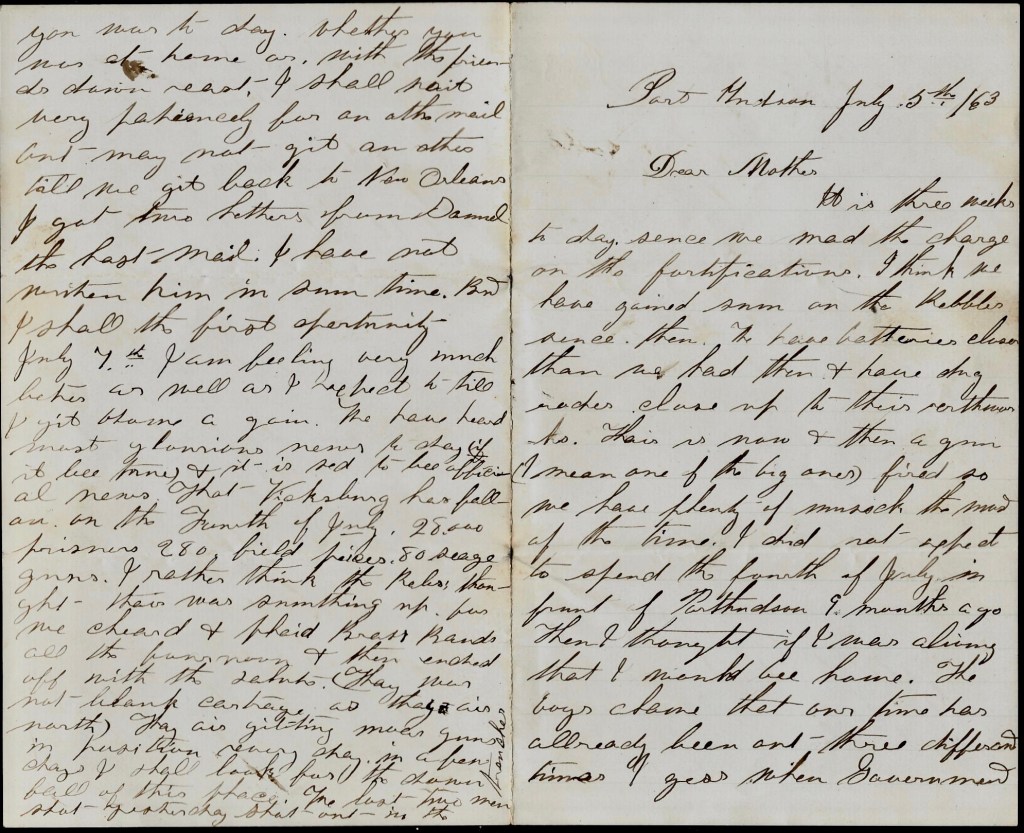 you was to day. whether you
was at home or, with the frien
ds down reast, I shall wait
very patiencely for an othe mail
ont may not git an other
till we git back to New Orleans
I got two letters from Daniel
the last mail. I have not
writen him in sum time. But
I shall the first opertunity
July 7.th I am feeling very much
better as well as I expect to till
I git home a gain. We have heard
most glourious news to day (if
it bee true) & it is sed to bee offici
al news. That Vicksburg has fall-
an. on the Fourth of July, 28.000
prisners 280, field peices. 80 seage
guns. I rather think the Rebs, thou-
ght thair was sumthing up. for
we cheard & plaid Brass Bands
all the fournoon & then ended
off with the salute. (Thay was
not blank cartrage as thay air
north) Thay air gitting moer guns
in position revery day. in a few
days I shall look for the down
fall of this place. We lost two men
shot yesterday shot in the
tranches
Port Hudson July. 5th /63
Dear Mother
It is three weeks
to day, sence we mad the charge
on the fortifications. I think we
have gained sum on the Rebbles
sence. then. We have batteries closer
than we had then & have dug
close up to thir erthwor
ks. Thair is now & then a gun
(I mean one of the big ones) fired so
we have plenty of musick the most
of the time. I did not expect
to spend the fourth of July in
frunt of Porthudson 9. months ago
Then I thought if I was aliving
that I would bee home. The
boys clame that our time has
allready been out three different
times I gess when Government